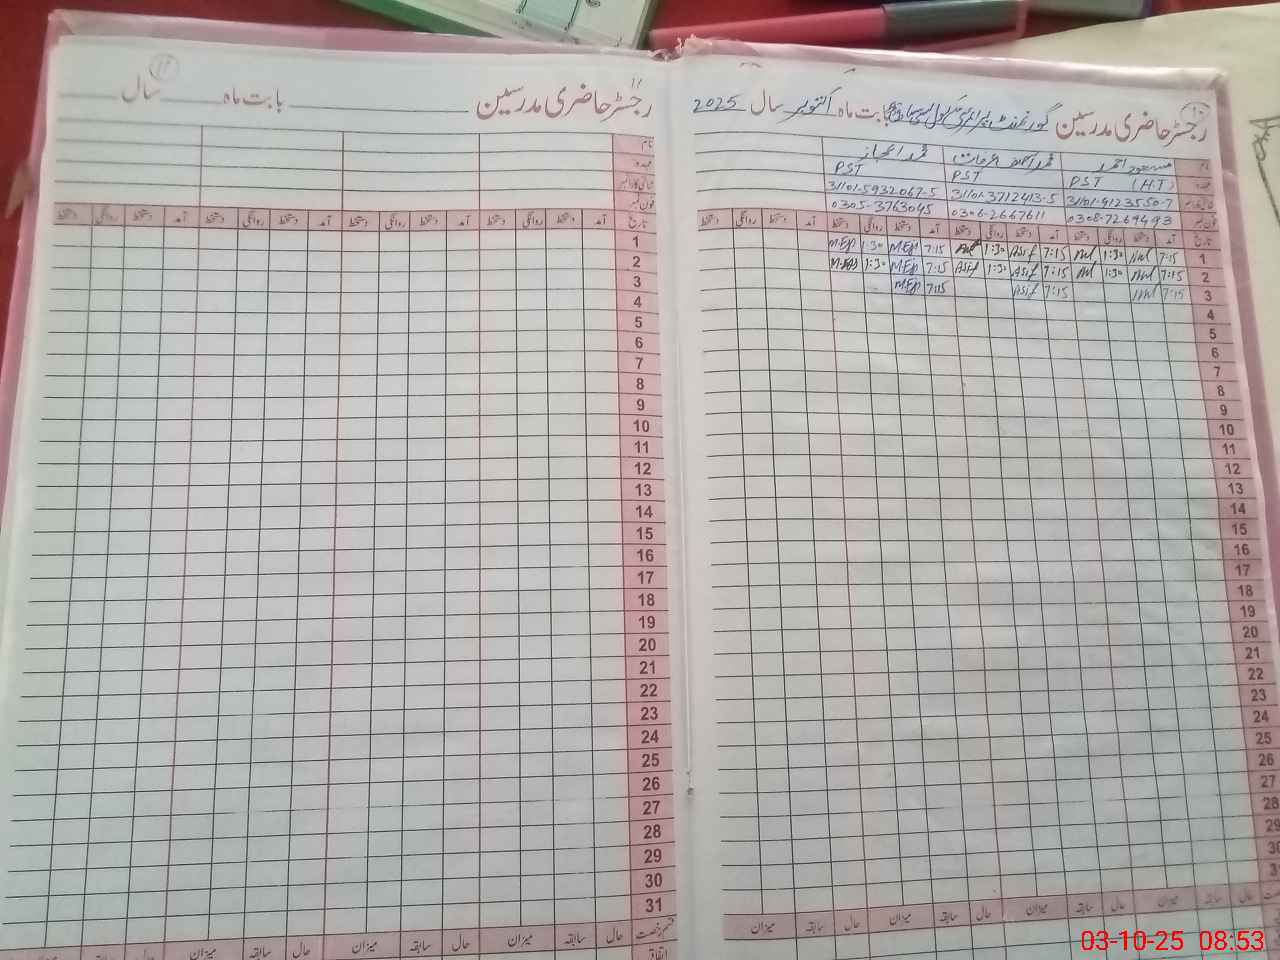 رجسٹر حاضری مدرسین گورنمنٹ پرائمری سکول بابت ماہ اکتوبر سال 2025
نام مسعود احمد محمد آصف عرفات محمد اعجاز
عہدہ PST (H.T) PST PST
شناختی کارڈ نمبر 31101-4123550-7 31101-3712413-5 31101-5932067-5
فون نمبر 0308-7269493 0306-2667611 0305-3763045
تاریخ آمد دستخط روانگی دستخط آمد دستخط روانگی دستخط آمد دستخط روانگی دستخط آمد دستخط روانگی دستخط
1 7:15 1:30 7:15 Asif 1:30 7:15 MEjp 1:30 MEjp
2 7:15 1:30 7:15 Asif 1:30 Asif 7:15 MEjp 1:30
3 7:15 7:15 Asif 7:15 MEjp
4
5
6
7
8
9
10
11
12
13
14
15
16
17
18
19
20
21
22
23
24
25
26
27
28
29
30
31
حال سابقہ میزان حال سابقہ میزان حال سابقہ میزان حال سابقہ میزان
رجسٹر حاضری مدرسین بابت ماہ سال
نام
عہدہ
شناختی کارڈ نمبر
فون نمبر
تاریخ آمد دستخط روانگی دستخط آمد دستخط روانگی دستخط آمد دستخط روانگی دستخط آمد دستخط روانگی دستخط
1
2
3
4
5
6
7
8
9
10
11
12
13
14
15
16
17
18
19
20
21
22
23
24
25
26
27
28
29
30
31
قسم رخصت حال سابقہ میزان حال سابقہ میزان حال سابقہ میزان حال سابقہ میزان
اتفاقیہ
03-10-25 08:53